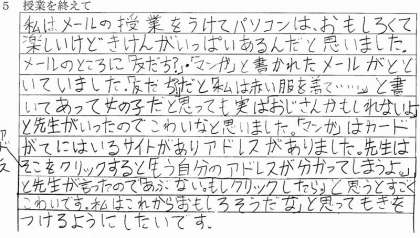 5 授業を終えて
私はメールの授業をうけてパソコンは、おもしろくて
楽しいけどきけんがいっぱいあるんだと思いました。
メールのところに「友だち?」・「マンガ」と書かれたメールがとど
いていました。「友だち」だと「私は赤い服を着て……」と書
いてあって女の子だと思っても実はおじさんかもしれないよ
と先生がいったのでこわいなと思いました。「マンガ」はカード
がてにはいるサイトがありアドレスがありました。先生は
「そこをクリックするともう自分のアドレスが分かってしまうよ。」
と先生が言ったのであぶない。もしクリックしたら」と思うとすごく
こわいです。私はこれから「おもしろそうだな」と思ってもきを
つけるようにしたいです。